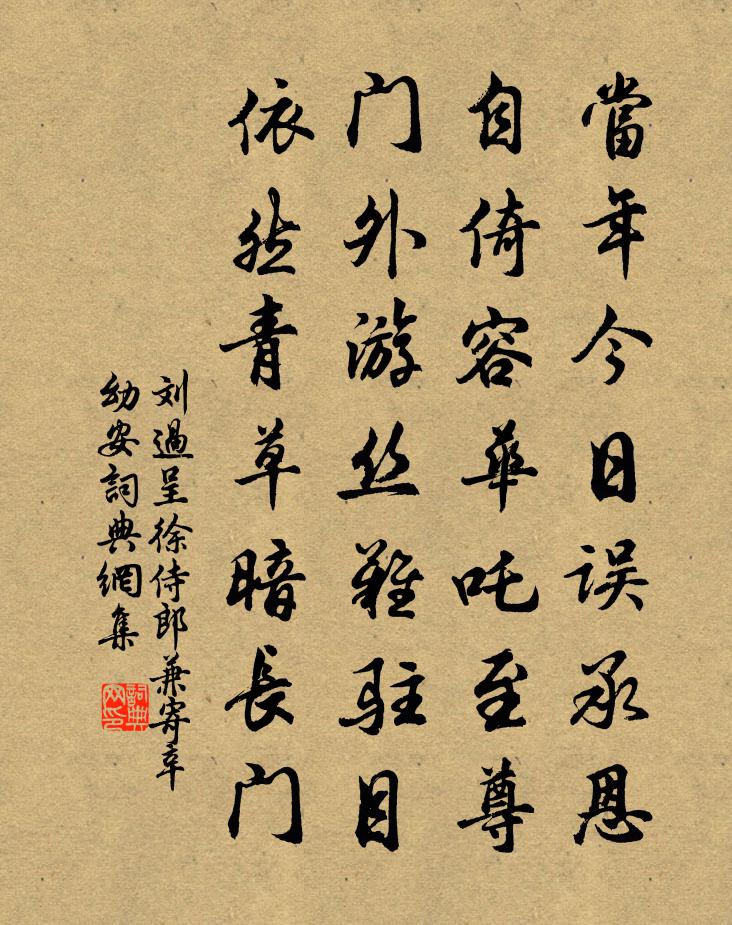 當年今日误承恩
自倚容華吒至尊
门外游丝難駐目
依然青草暗長门
刘過呈徐侍郎兼寄辛
幼安詞典網集
詞典
网印